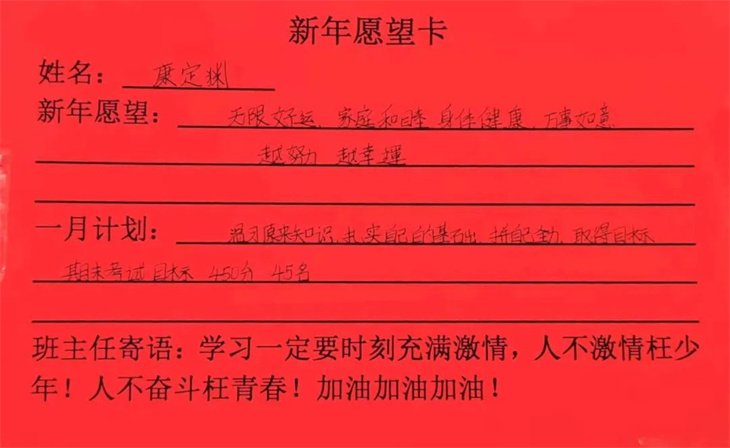 新年愿望卡
姓名：康定渊
新年愿望：无限好运、家庭和睦 身体健康、万事如意
越努力 越幸運
一月计划：温习原来知识，扎实自己的基础，拼配全力，取得目标
期末考试目标 450分 45名
班主任寄语：学习一定要时刻充满激情，人不激情枉少
年！人不奋斗枉青春！加油加油加油！